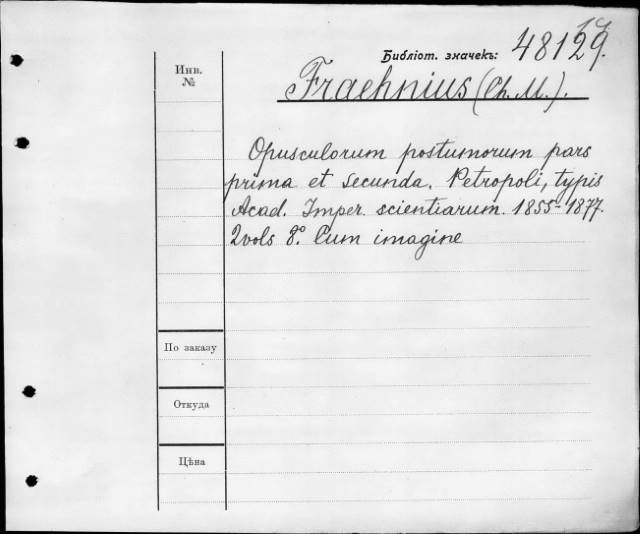 Библіот. значекъ: 48129.
Инв.
№
Fraehnius (Ch. M.).
Opusculorum postumorum pars
prima et secunda. Petropoli, typis
Acad. Imper. scientiarum. 1855-1877.
2vols 8°. Cum imagine
По заказу
Откуда
Цѣна